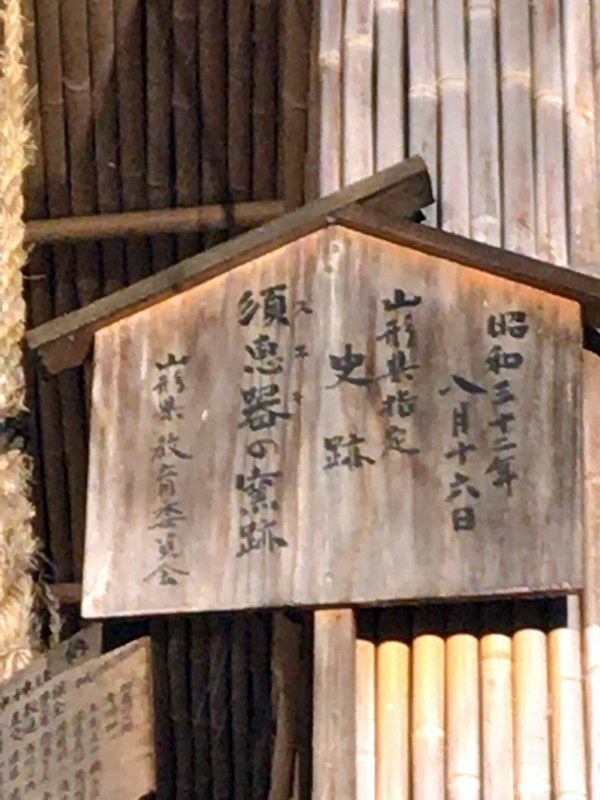 昭和三十二年
八月十六日
山形県指定
史跡
スエキ
須恵器の窯跡
山形県教育委員会